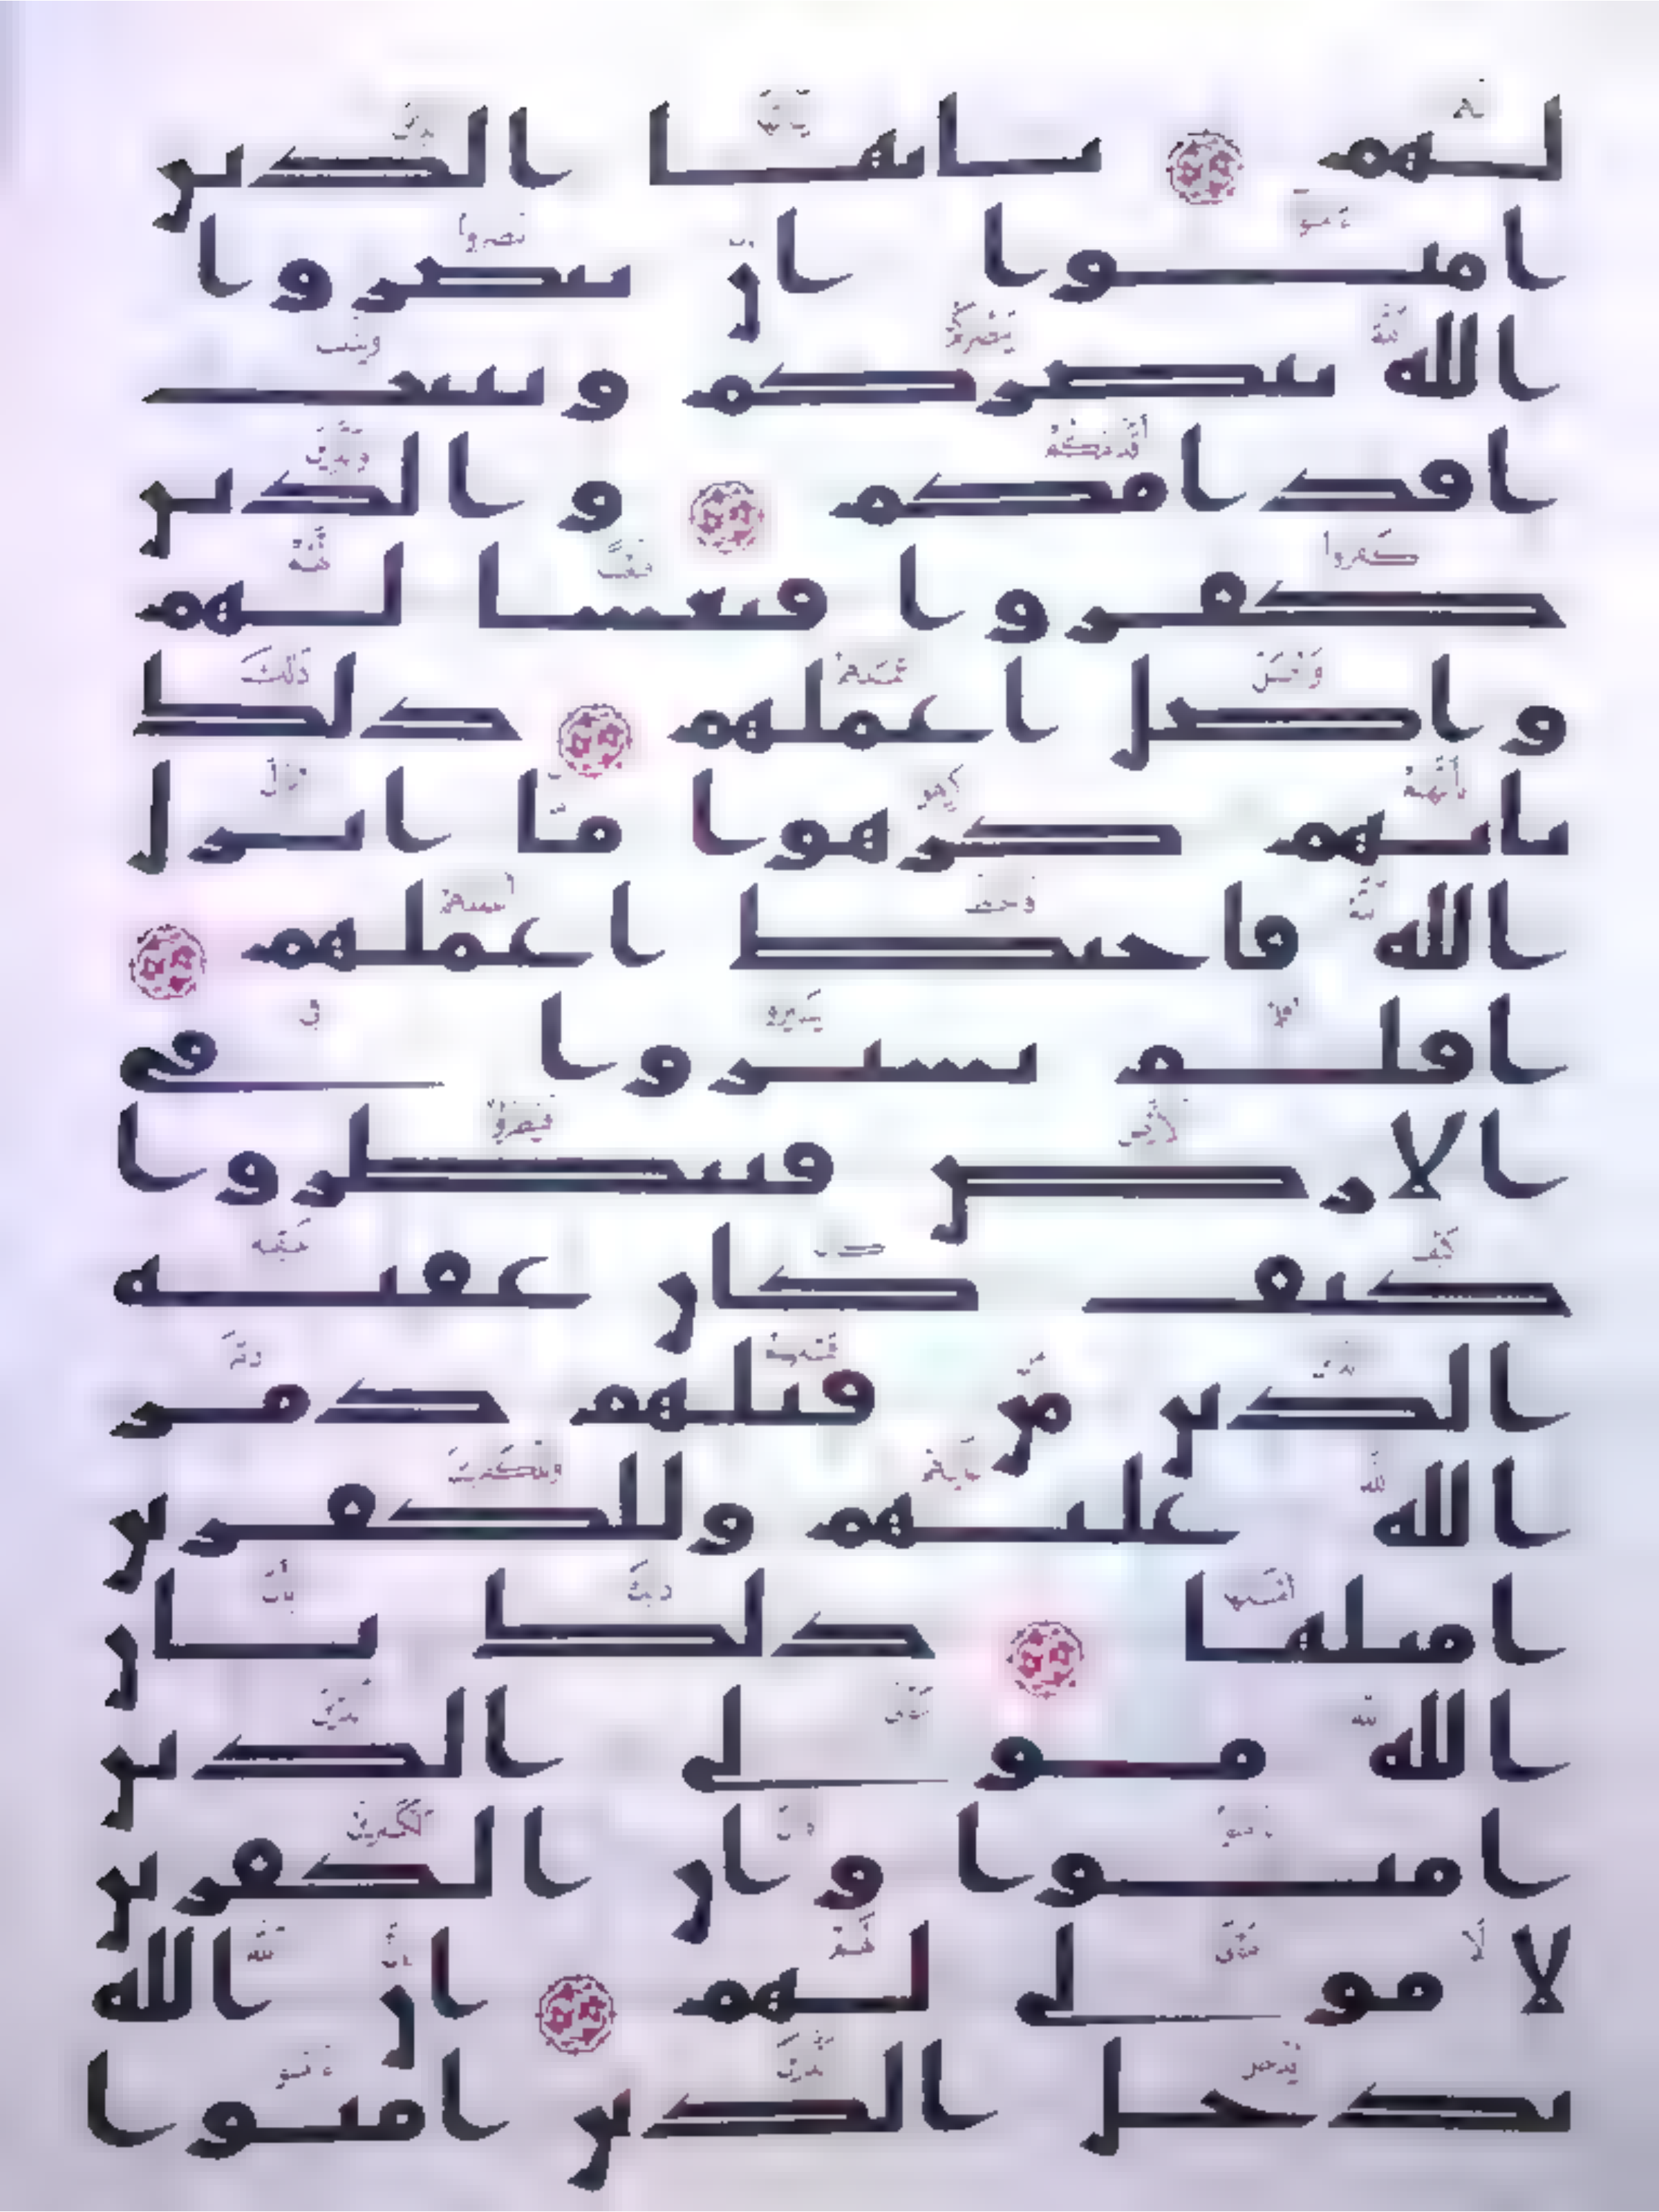 لهم يايها الذين
امنوا ان تنصروا
الله ينصركم ويثبت
اقدامكم والذين
كفروا فتعسا لهم
واضل اعملهم ذلك
بانهم كرهوا ما انزل
الله فاحبط اعملهم
افلم يسيروا في
الارض فينظروا
كيف كان عقبه
الذين من قبلهم دمر
الله عليهم وللكفرين
امثلها ذلك بان
الله مولى الذين
امنوا وان الكفرين
لا مولى لهم ان الله
يدخل الذين امنوا